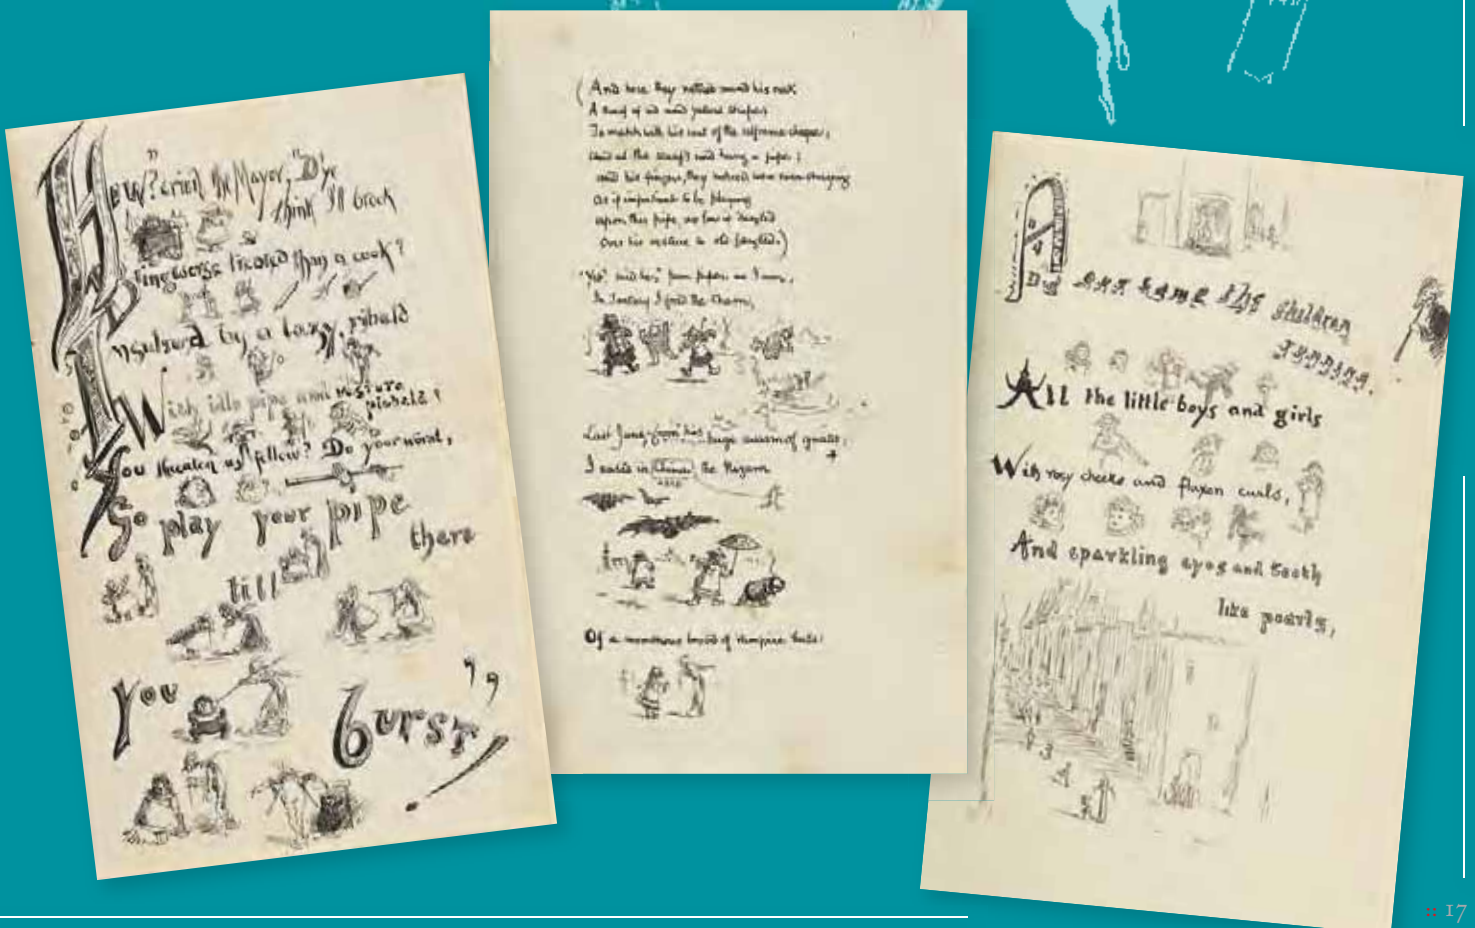 How? cried the Mayor, "D'ye
think I'll brook
Being worse treated than a cook?
Insulted by a lazy ribald
With idle pipe and vesture
piebald?
You threaten us, fellow? Do your worst,
Go play your pipe
there
till
you
burst!"
(And here they noticed round his neck
A scarf of red and yellow stripes
To match with his coat of the selfsame cheque;
And at the scarf's end hung a pipe;
And his fingers, they noticed were ever straying
As if impatient to be playing
Upon this pipe, as low it dangled
Over his vesture so old fangled.)
"Yet," said he, "poor piper as I am,
In Tartary I freed the Cham,
Last June, from his huge swarm of gnats;
I eased in the Nizam
Of a monstrous brood of vampire bats:
And
out came the children
running.
All the little boys and girls
With rosy cheeks and flaxen curls,
And sparkling eyes and teeth
like pearls,
:: 17